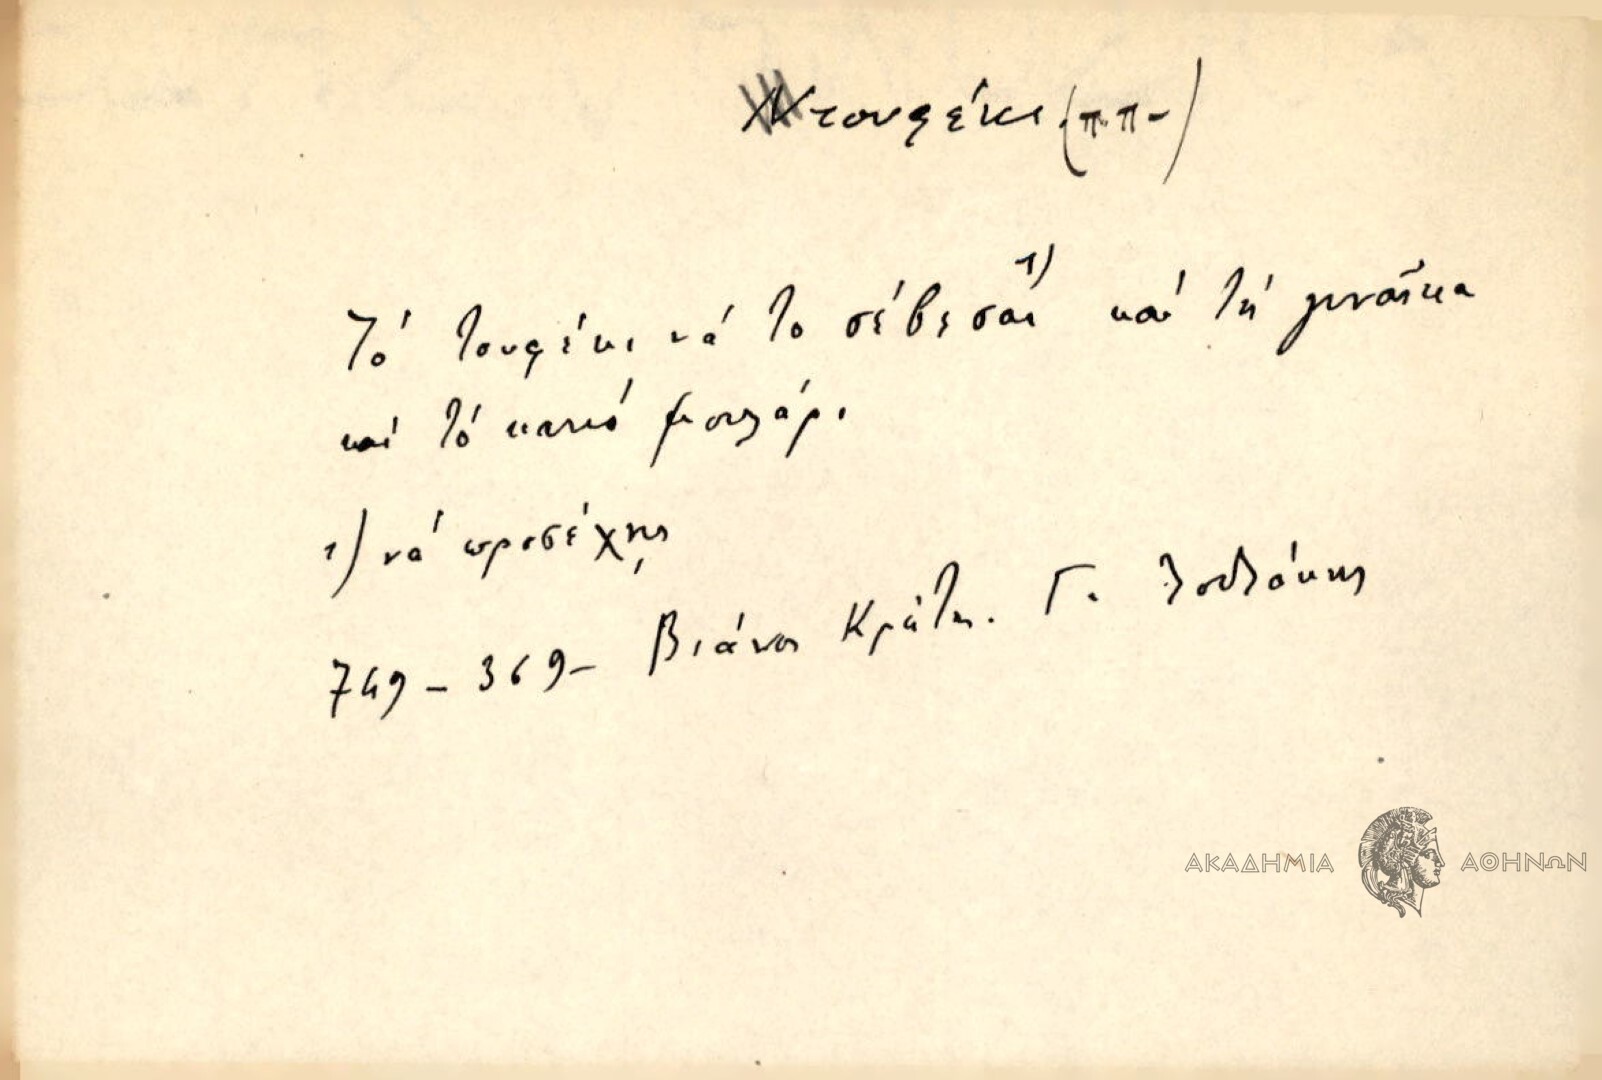 Ντουφέκι (π.π-)
Τό τουφέκι νά το σέβεσαι 1) καί τή γυναῖκα
καί τό κακό μουλάρι
1) νά προσέχῃς
749 - 369 - Βιάνος Κρήτη. Γ.
ΑΚΑΔΗΜΙΑ ΑΘΗΝΩΝ